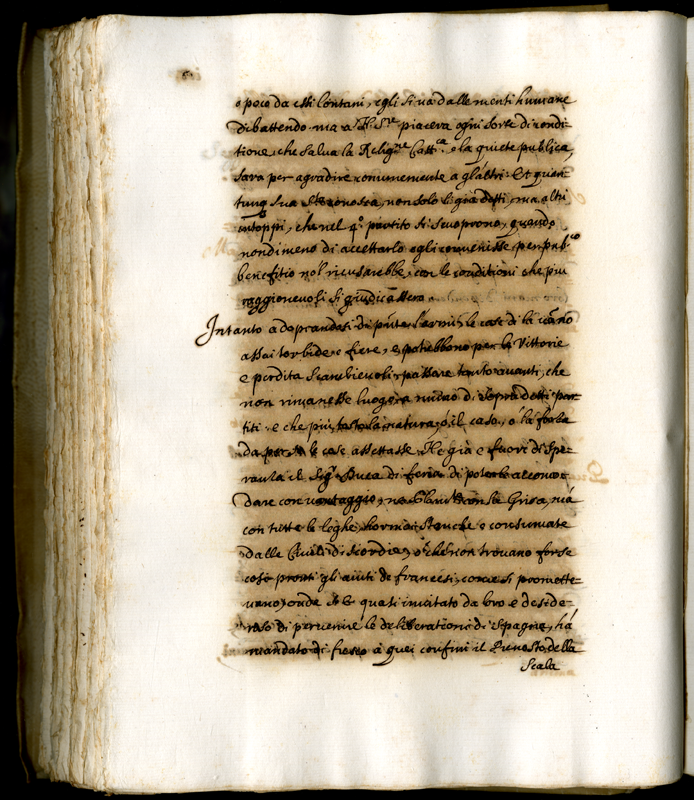 o poco da essi lontani, egli si và dalle menti humane
dibattendo ma a N. S.re piacerà ogni sorte di condi-
tione, che salva la Relig.ne Catt.ca e la quiete publica,
sarà per agradire comunemente a gl'altri. Et quan-
tunq sua non solo li già detti, ma altri
intoppi, che nel 4.o partito si scuoprono, quando
nondimeno di accettarlo egli convenisse per pub.co
benefitio nol ricusarebbe, con le conditioni che più
raggionevoli si giudicassero
Intanto adoprandosi di p̃nte l'armi, le cose di là
assai torbide e fiere, e potrebbono per le Vittorie
e perdita scambievoli passare tant'avanti, che
non rimanesse luogo a niuno di sopradetti par-
titi. e che più tosto la natura, ò il caso, o la forza
da le cose assettasse. Nè già è fuori di spe-
ranza il Sig.r Duca di feria di poterle accomo-
dare con vantaggio, ma Grisa, mà
con tutte le leghe, hormai stanche e consumate
dalle Civili discordie, che non trovano forse
così pronti gli aiuti de francesi, come si promette-
vano, onde quasi invitato da loro e deside-
roso di pervenire le deliberationi di spagna, hà
mandato di fresco à quei confini il della
Scala